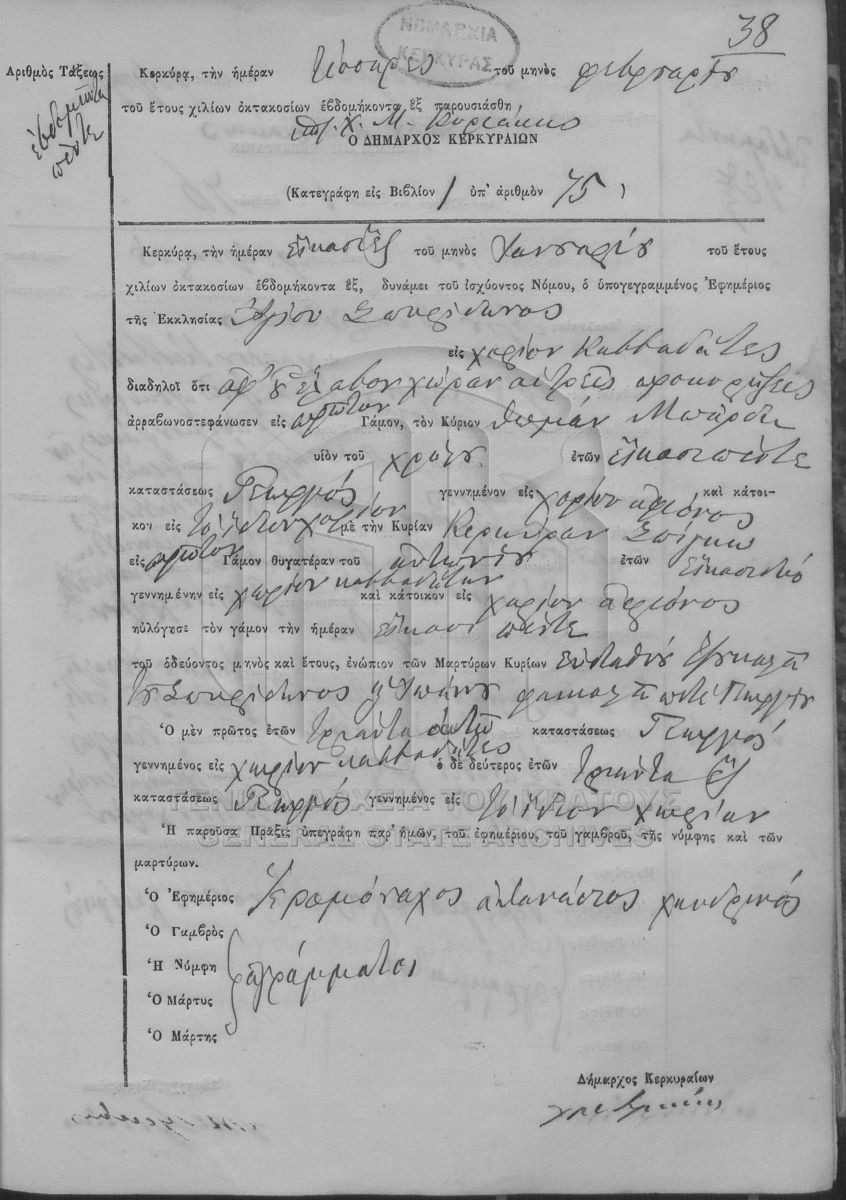 ΝΟΜΑΡΧΙΑ
ΚΕΡΚΥΡΑΣ
38
Ἀριθμὸς Τάξεως
ἑβδομῆντα
πέντε
Κερκύρᾳ, τὴν ἡμέραν τέσσαρες τοῦ μηνὸς φεβρουαρίου
τοῦ ἔτους χιλίων ὀκτακοσίων ἑβδομήκοντα ἓξ παρουσιάσθη
Ὁ ΔΗΜΑΡΧΟΣ ΚΕΡΚΥΡΑΙΩΝ
(Κατεγράφη εἰς Βιβλίον 1 ὑπ' ἀριθμὸν 75)
Κερκύρᾳ, τὴν ἡμέραν εἴκοσι ἕξ τοῦ μηνὸς Ἰανουαρίου τοῦ ἔτους
χιλίων ὀκτακοσίων ἑβδομήκοντα ἕξ, δυνάμει τοῦ ἰσχύοντος Νόμου, ὁ ὑπογεγραμμένος Ἐφημέριος
τῆς Ἐκκλησίας Ἁγίου Σπυρίδωνος
εἰς χωρίον Καββαδάτες
διαδηλοῖ ὅτι ἀφ' οὗ ἔλαβον χώραν αἱ τρεῖς προκηρύξεις
ἀρραβωνοστεφάνωσεν εἰς πρῶτον Γάμον, τὸν Κύριον Θωμᾶν
υἱὸν τοῦ ἐτῶν εἴκοσι πέντε
καταστάσεως Γεωργός γεννημένον εἰς χωρίον καὶ κάτοι-
κον εἰς τὸ ἴδιον χωρίον μὲ τὴν Κυρίαν Κερκύραν
εἰς πρῶτον Γάμον θυγατέραν τοῦ ἀντωνίου ἐτῶν
γεννημένην εἰς χωρίον καββαδάτων καὶ κάτοικον εἰς χωρίον
ηὐλόγησε τὸν γάμον τὴν ἡμέραν εἴκοσι πέντε
τοῦ ὁδεύοντος μηνὸς καὶ ἔτους, ἐνώπιον τῶν Μαρτύρων Κυρίων Εὐσταθίου
τοῦ Σπυρίδωνος ποτὲ Γεωργίου
Ὁ μὲν πρῶτος ἐτῶν τριάντα ὀκτώ καταστάσεως Γεωργός
γεννημένος εἰς χωρίον καββαδάτες ὁ δὲ δεύτερος ἐτῶν τριάντα ἕξ
καταστάσεως Γεωργός γεννημένος εἰς τὸ ἴδιον χωρίον
ΓΕΝΙΚΑ ΑΡΧΕΙΑ ΤΟΥ ΚΡΑΤΟΥΣ
Ἡ παροῦσα Πρᾶξις ὑπεγράφη παρ' ἡμῶν, τοῦ ἐφημέριου, τοῦ γαμβροῦ, τῆς νύμφης καὶ τῶν
GENERAL STATE ARCHIVES
μαρτύρων.
Ὁ Ἐφημέριος Ἱερομόναχος
Ὁ Γαμβρὸς
Ἡ Νύμφη ἀγράμματοι
Ὁ Μάρτυς
Ὁ Μάρτης
Δήμαρχος Κερκυραίων